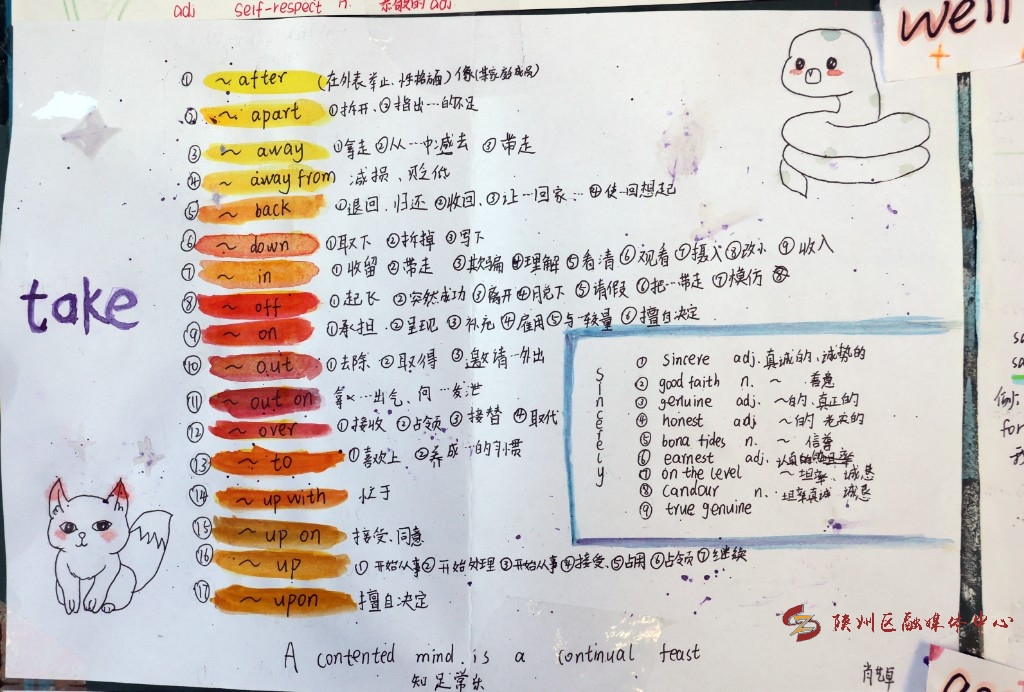 adj self-respect n. 的adj
well
take
① ~ after (在外表、举止、性格方面) 像(某家庭成员)
② ~ apart ①拆开、②指出…的不足
③ ~ away ①拿走 ②从…中减去 ③带走
④ ~ away from 减损、贬低
⑤ ~ back ①退回、归还 ②收回、③让…回家… ④使…回想起
⑥ ~ down ①取下 ②拆掉 ③写下
⑦ ~ in ①收留 ②带走 ③欺骗 ④理解 ⑤看清 ⑥观看 ⑦摄入 ⑧改小 ⑨收入
⑧ ~ off ①起飞 ②突然成功 ③离开 ④脱下 ⑤请假 ⑥把…带走 ⑦模仿 ⑧
⑨ ~ on ①承担、②呈现 ③补充 ④雇用 ⑤与…较量 ⑥擅自决定
⑩ ~ out ①去除 ②取得 ③邀请…外出
⑪ ~ out on 拿…出气、向…发泄
⑫ ~ over ①接收 ②占领 ③接替 ④取代
⑬ ~ to ①喜欢上 ②养成…的习惯
⑭ ~ up with 忙于
⑮ ~ up on 接受、同意
⑯ ~ up ①开始从事 ②开始处理 ③开始从事 ④接受、⑤占用 ⑥占领 ⑦继续
⑰ ~ upon 擅自决定
Sincerely
① sincere adj. 真诚的、诚挚的
② good faith n. ~ 善意
③ genuine adj. ~的、真正的
④ honest adj ~的
⑤ bona tides n. ~
⑥ earnest adj. 认真的
⑦ on the level ~ 坦率、诚恳
⑧ candour n. 坦率真诚 诚恳
⑨ true genuine
A contented mind is a continual feast
知足常乐
陕州区融媒体中心